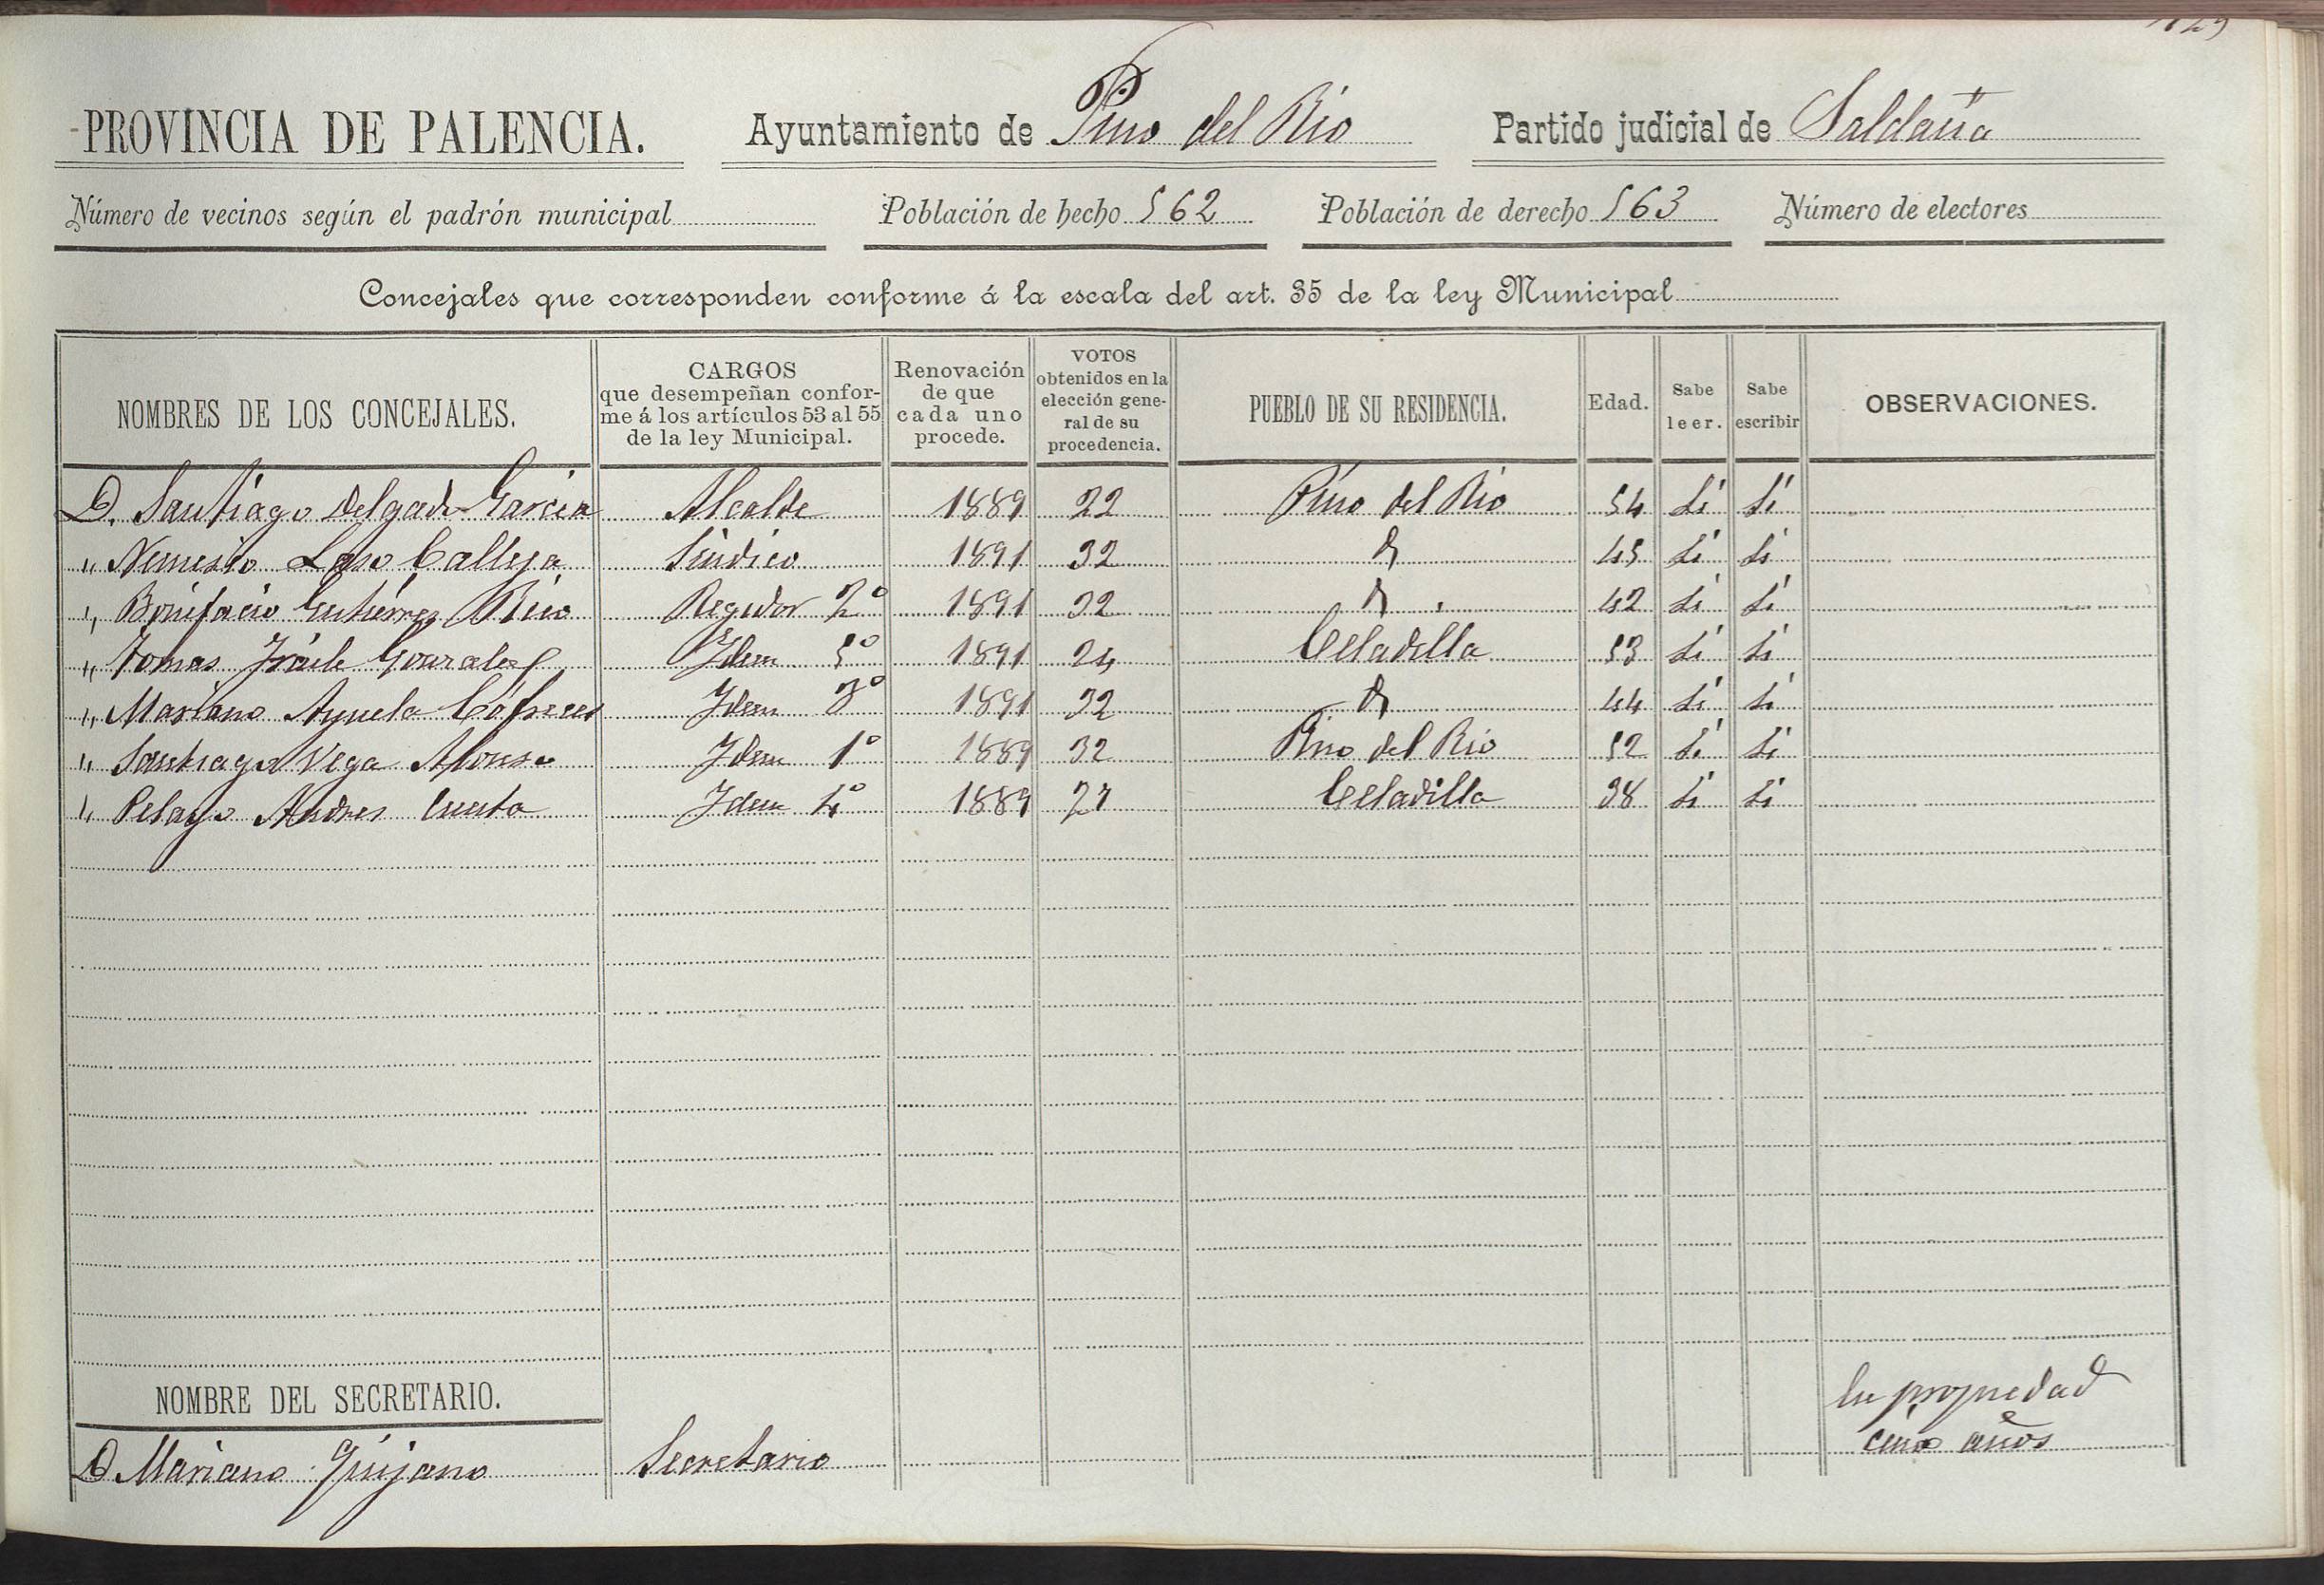 PROVINCIA DE PALENCIA. Ayuntamiento de Pino del Rio Partido judicial de Saldaña
Número de vecinos según el padrón municipal Población de hecho 562 Población de derecho 563 Número de electores
Concejales que corresponden conforme á la escala del art. 35 de la ley Municipal
NOMBRES DE LOS CONCEJALES. CARGOS que desempeñan conforme á los artículos 53 al 55 de la ley Municipal. Renovación de que cada uno procede. VOTOS obtenidos en la elección general de su procedencia. PUEBLO DE SU RESIDENCIA. Edad. Sabe leer. Sabe escribir OBSERVACIONES.
D. Santiago Delgado Garcia Alcalde 1889 22 Pino del Rio 54 Si Si
" Nemesio Laso Calleja Sindico 1891 32 43 Si Si
" Bonifacio Gutierrez Rico Regidor 2º 1891 32 42 Si Si
" Tomas Fraile Gonzalez Idem 5º 1891 24 Celadilla 53 Si Si
" Mariano Ayuela Idem 3º 1891 32 44 Si Si
" Santiago Vega Alonso Idem 1º 1889 32 Pino del Rio 52 Si Si
" Pelayo Andres Cuesta Idem 4º 1889 27 Celadilla 38 Si Si
NOMBRE DEL SECRETARIO.
D Mariano Quijano Secretario En propiedad
años